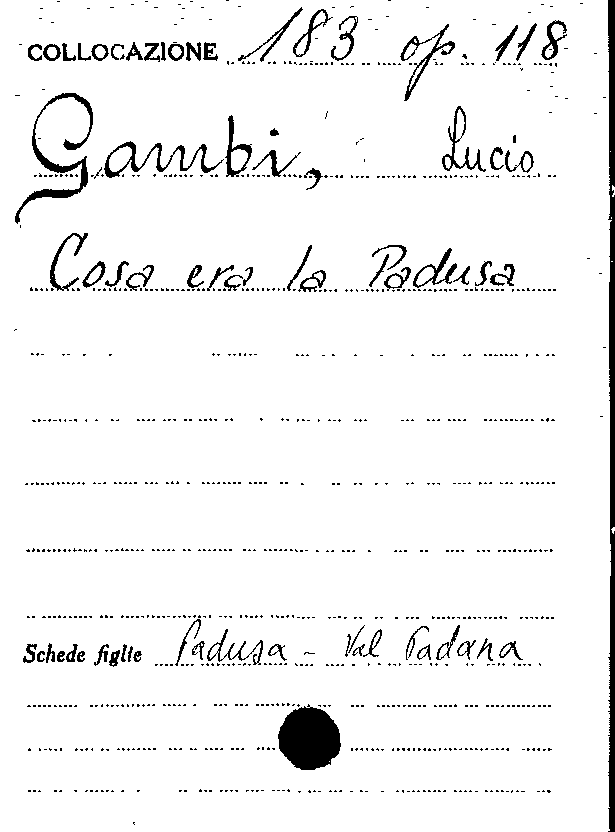 COLLOCAZIONE 183 op. 118
Gambi, Lucio
Cosa era la Padusa
Schede figlie Padusa - Val Padana